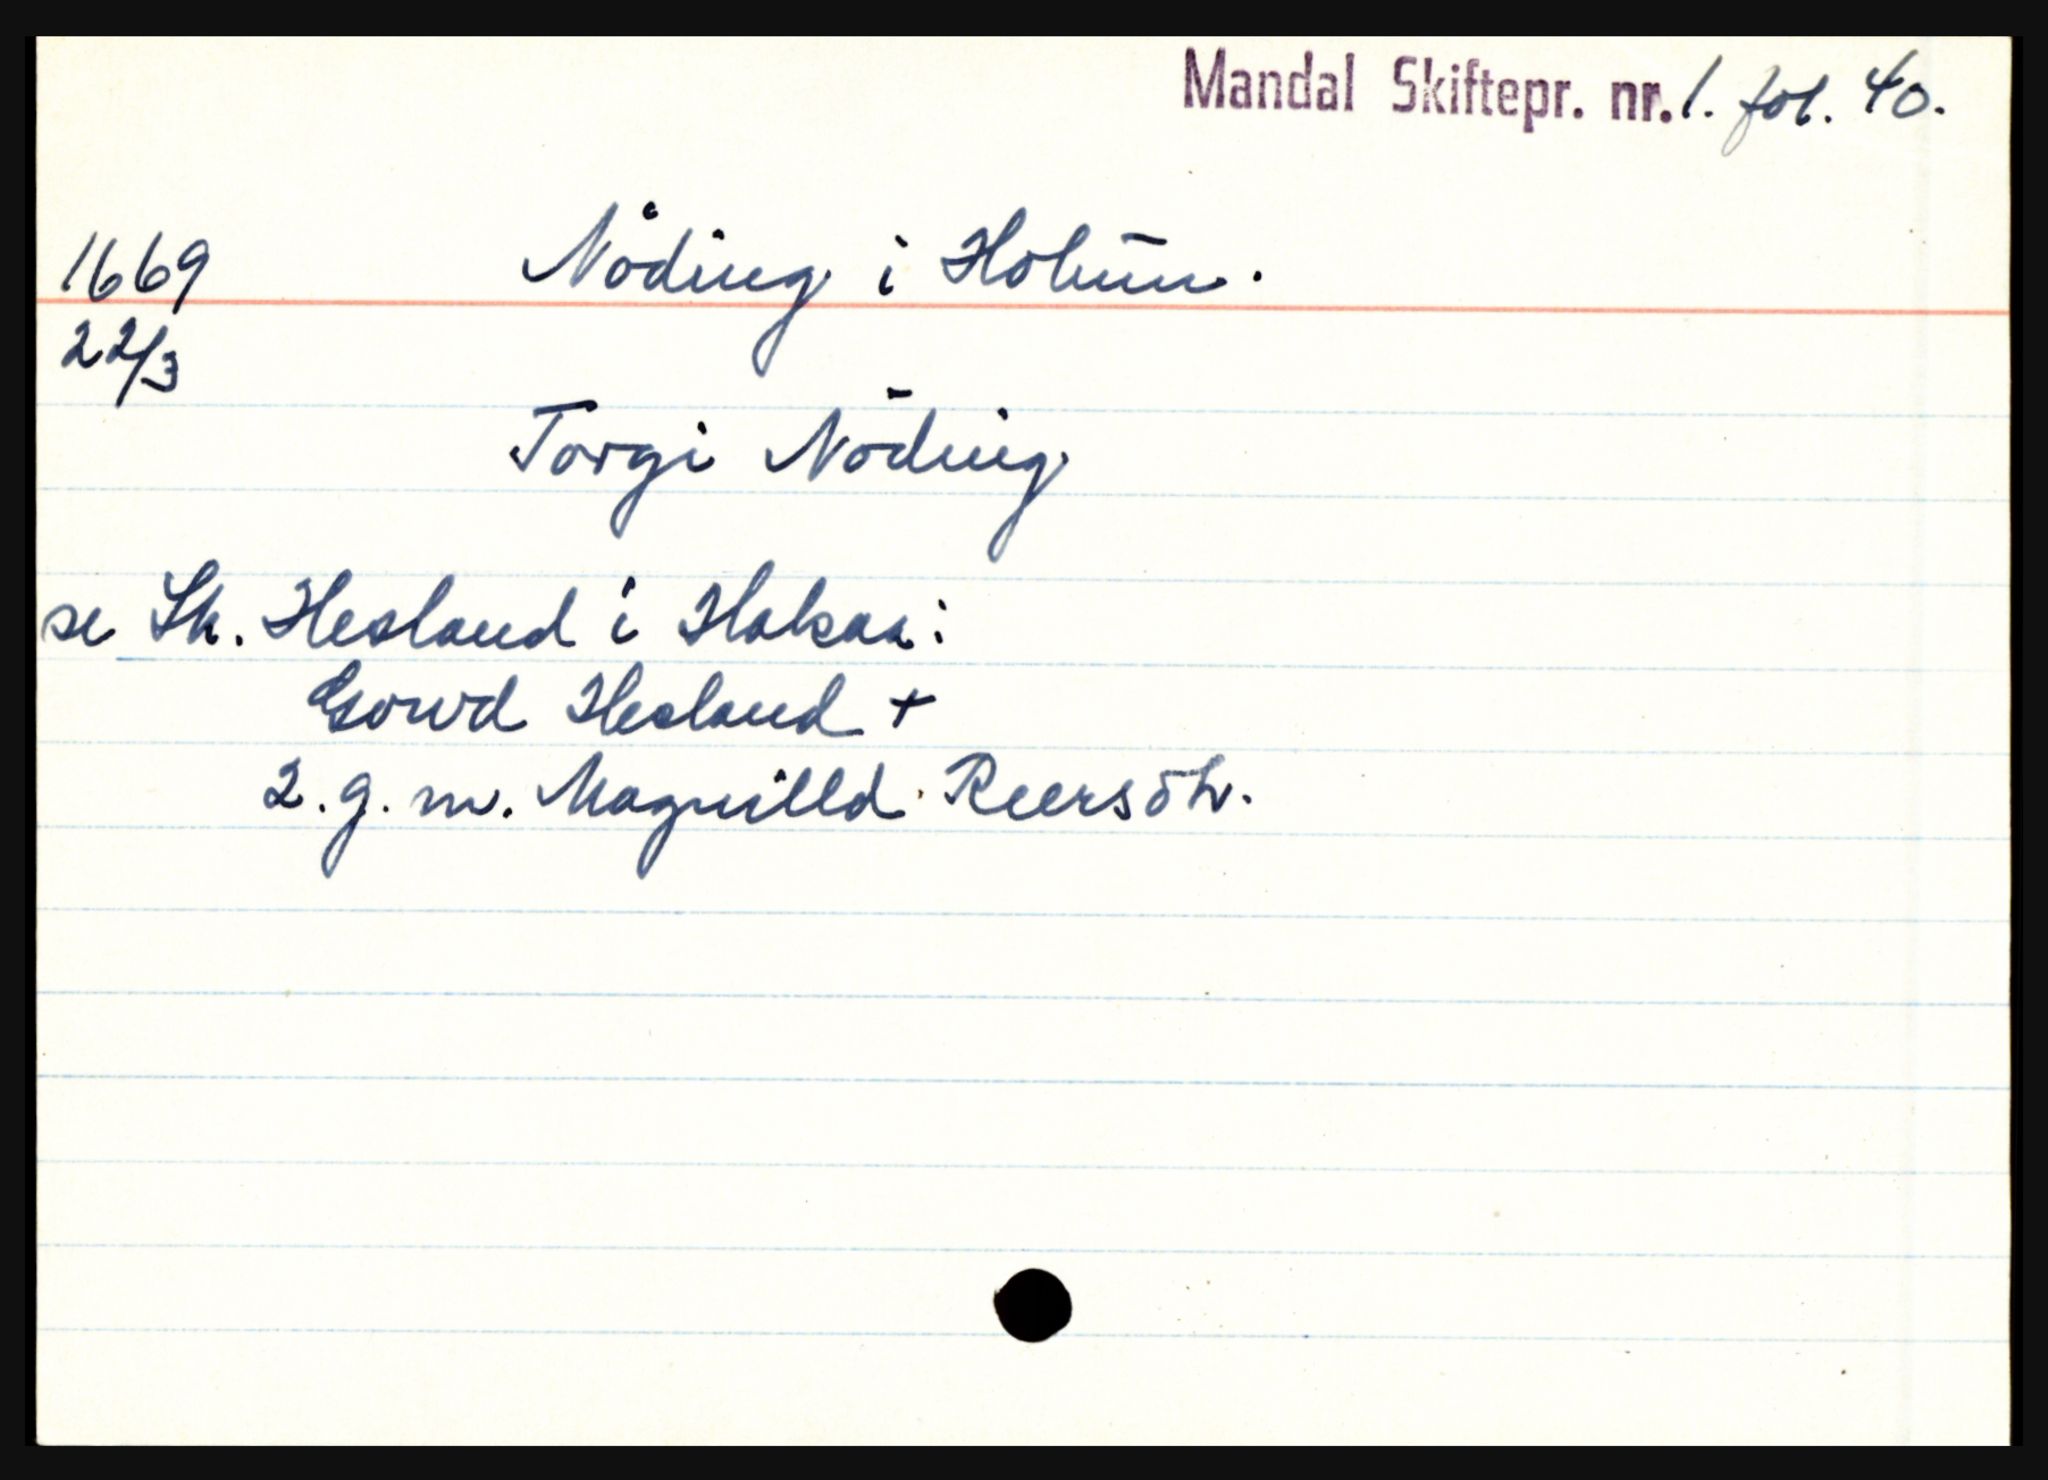 Mandal Skiftepr. nr. 1. fol. 40.
1669 Nöding i Holum.
22/3
Torgi Nöding
se Sk. Hesland i Halsaa:
Gowd Hesland +
2. g. m. Magnilld Reersdtr.